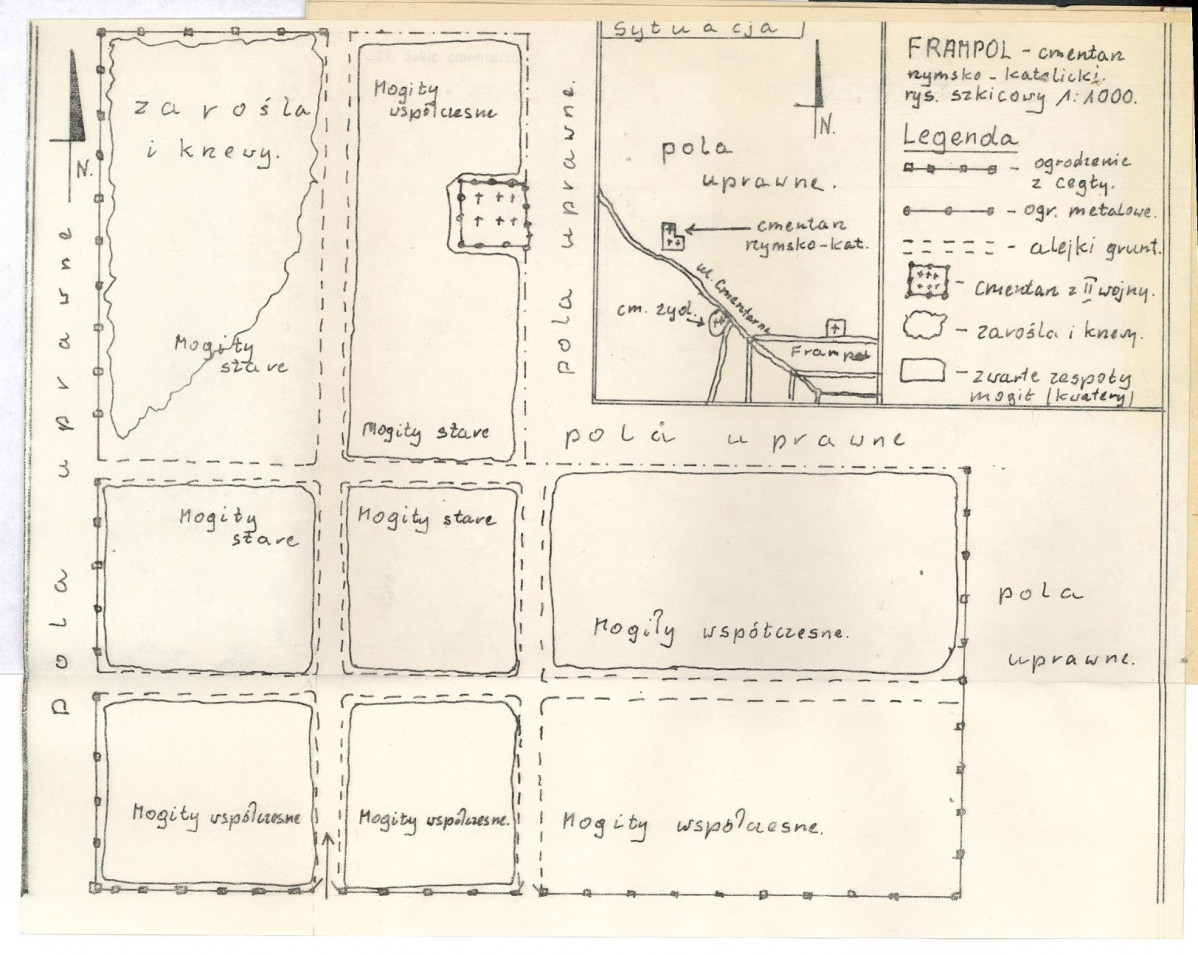 Sytuacja
FRAMPOL - cmentarz
rzymsko-katolicki.
rys. szkicowy 1:1000.
Legenda
ogrodzenie
z cegły.
ogr. metalowe.
alejki grunt.
cmentarz z II wojny.
zarośla i krzewy.
zwarte zespoły
mogił (kwatery)
N.
pola
uprawne.
cmentarz
rzymsko-kat.
ul. Cmentarna
cm. żyd.
Frampol
N.
zarośla
i krzewy.
Mogiły
współczesne
pola uprawne.
pola uprawne
Mogiły
stare
Mogiły stare
pola uprawne
Mogiły
stare
Mogiły stare
Mogiły współczesne.
pola
uprawne.
Mogiły współczesne
Mogiły współczesne.
Mogiły współczesne.